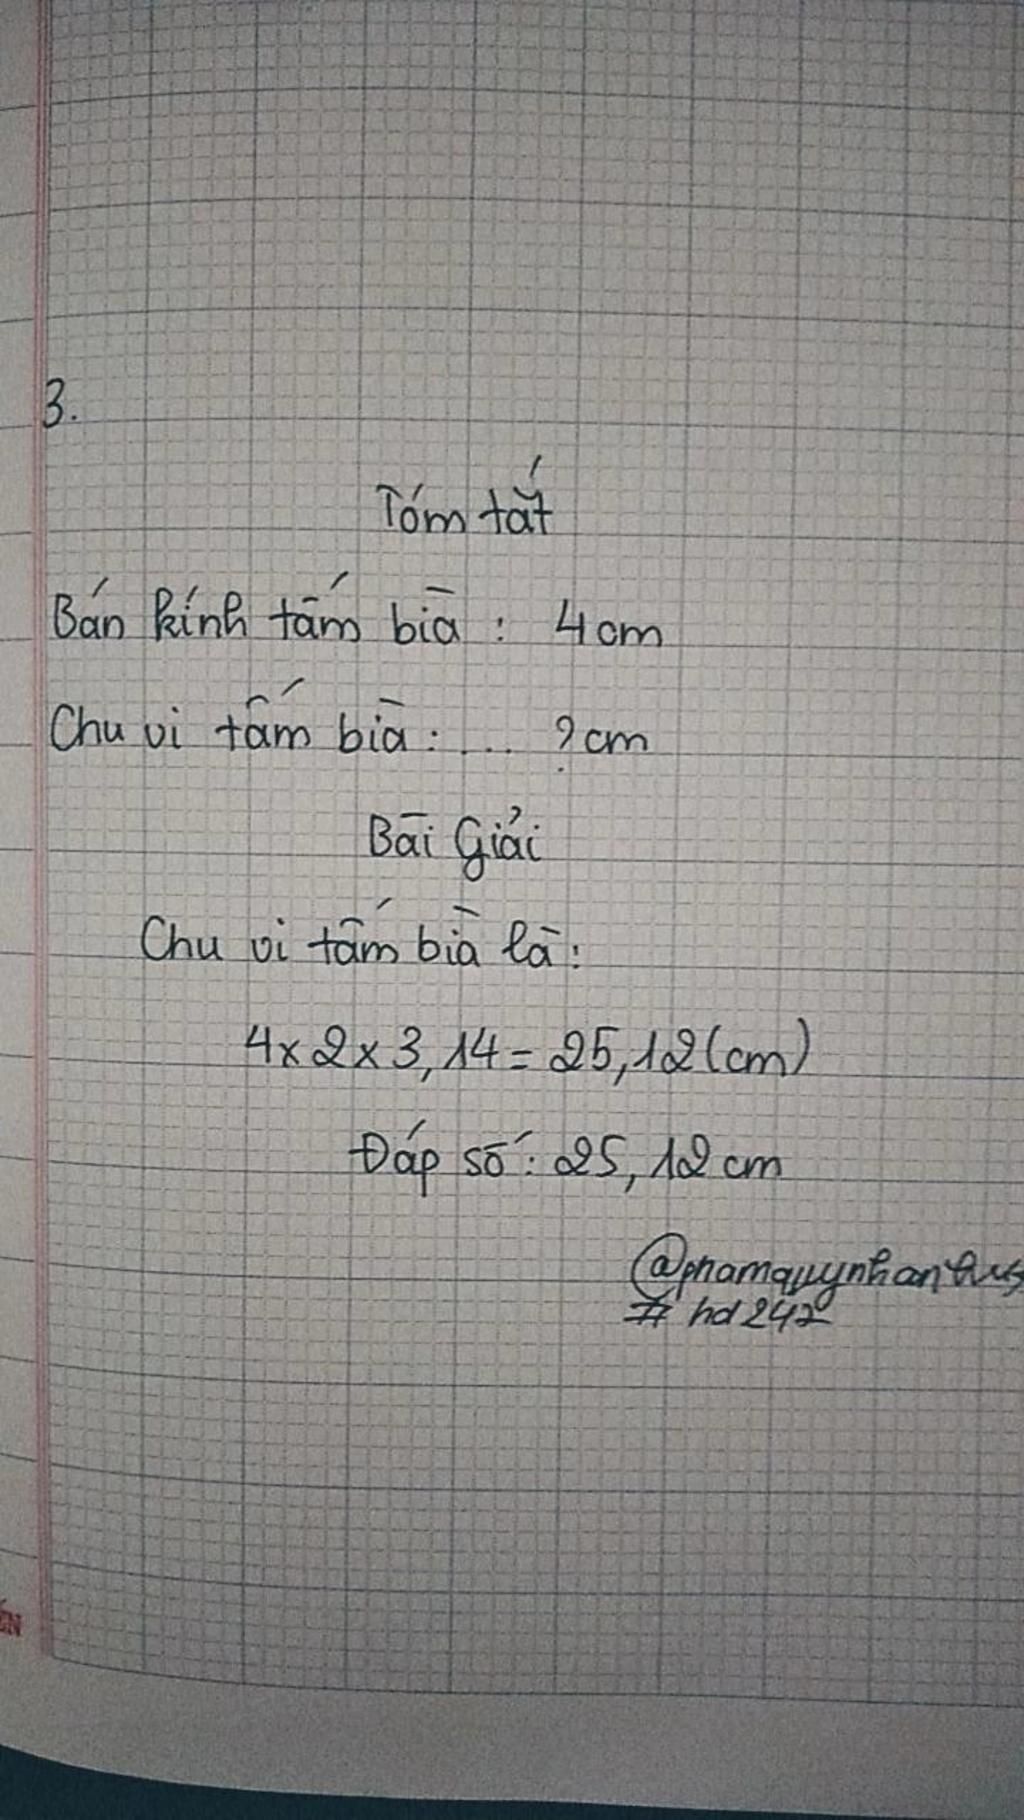 3.
Tóm tắt
Bán kính tấm bìa : 4cm
Chu vi tấm bìa : ... ? cm
Bài Giải
Chu vi tấm bìa là :
4 x 2 x 3,14 = 25,12 (cm)
Đáp số : 25,12 cm
# hd242